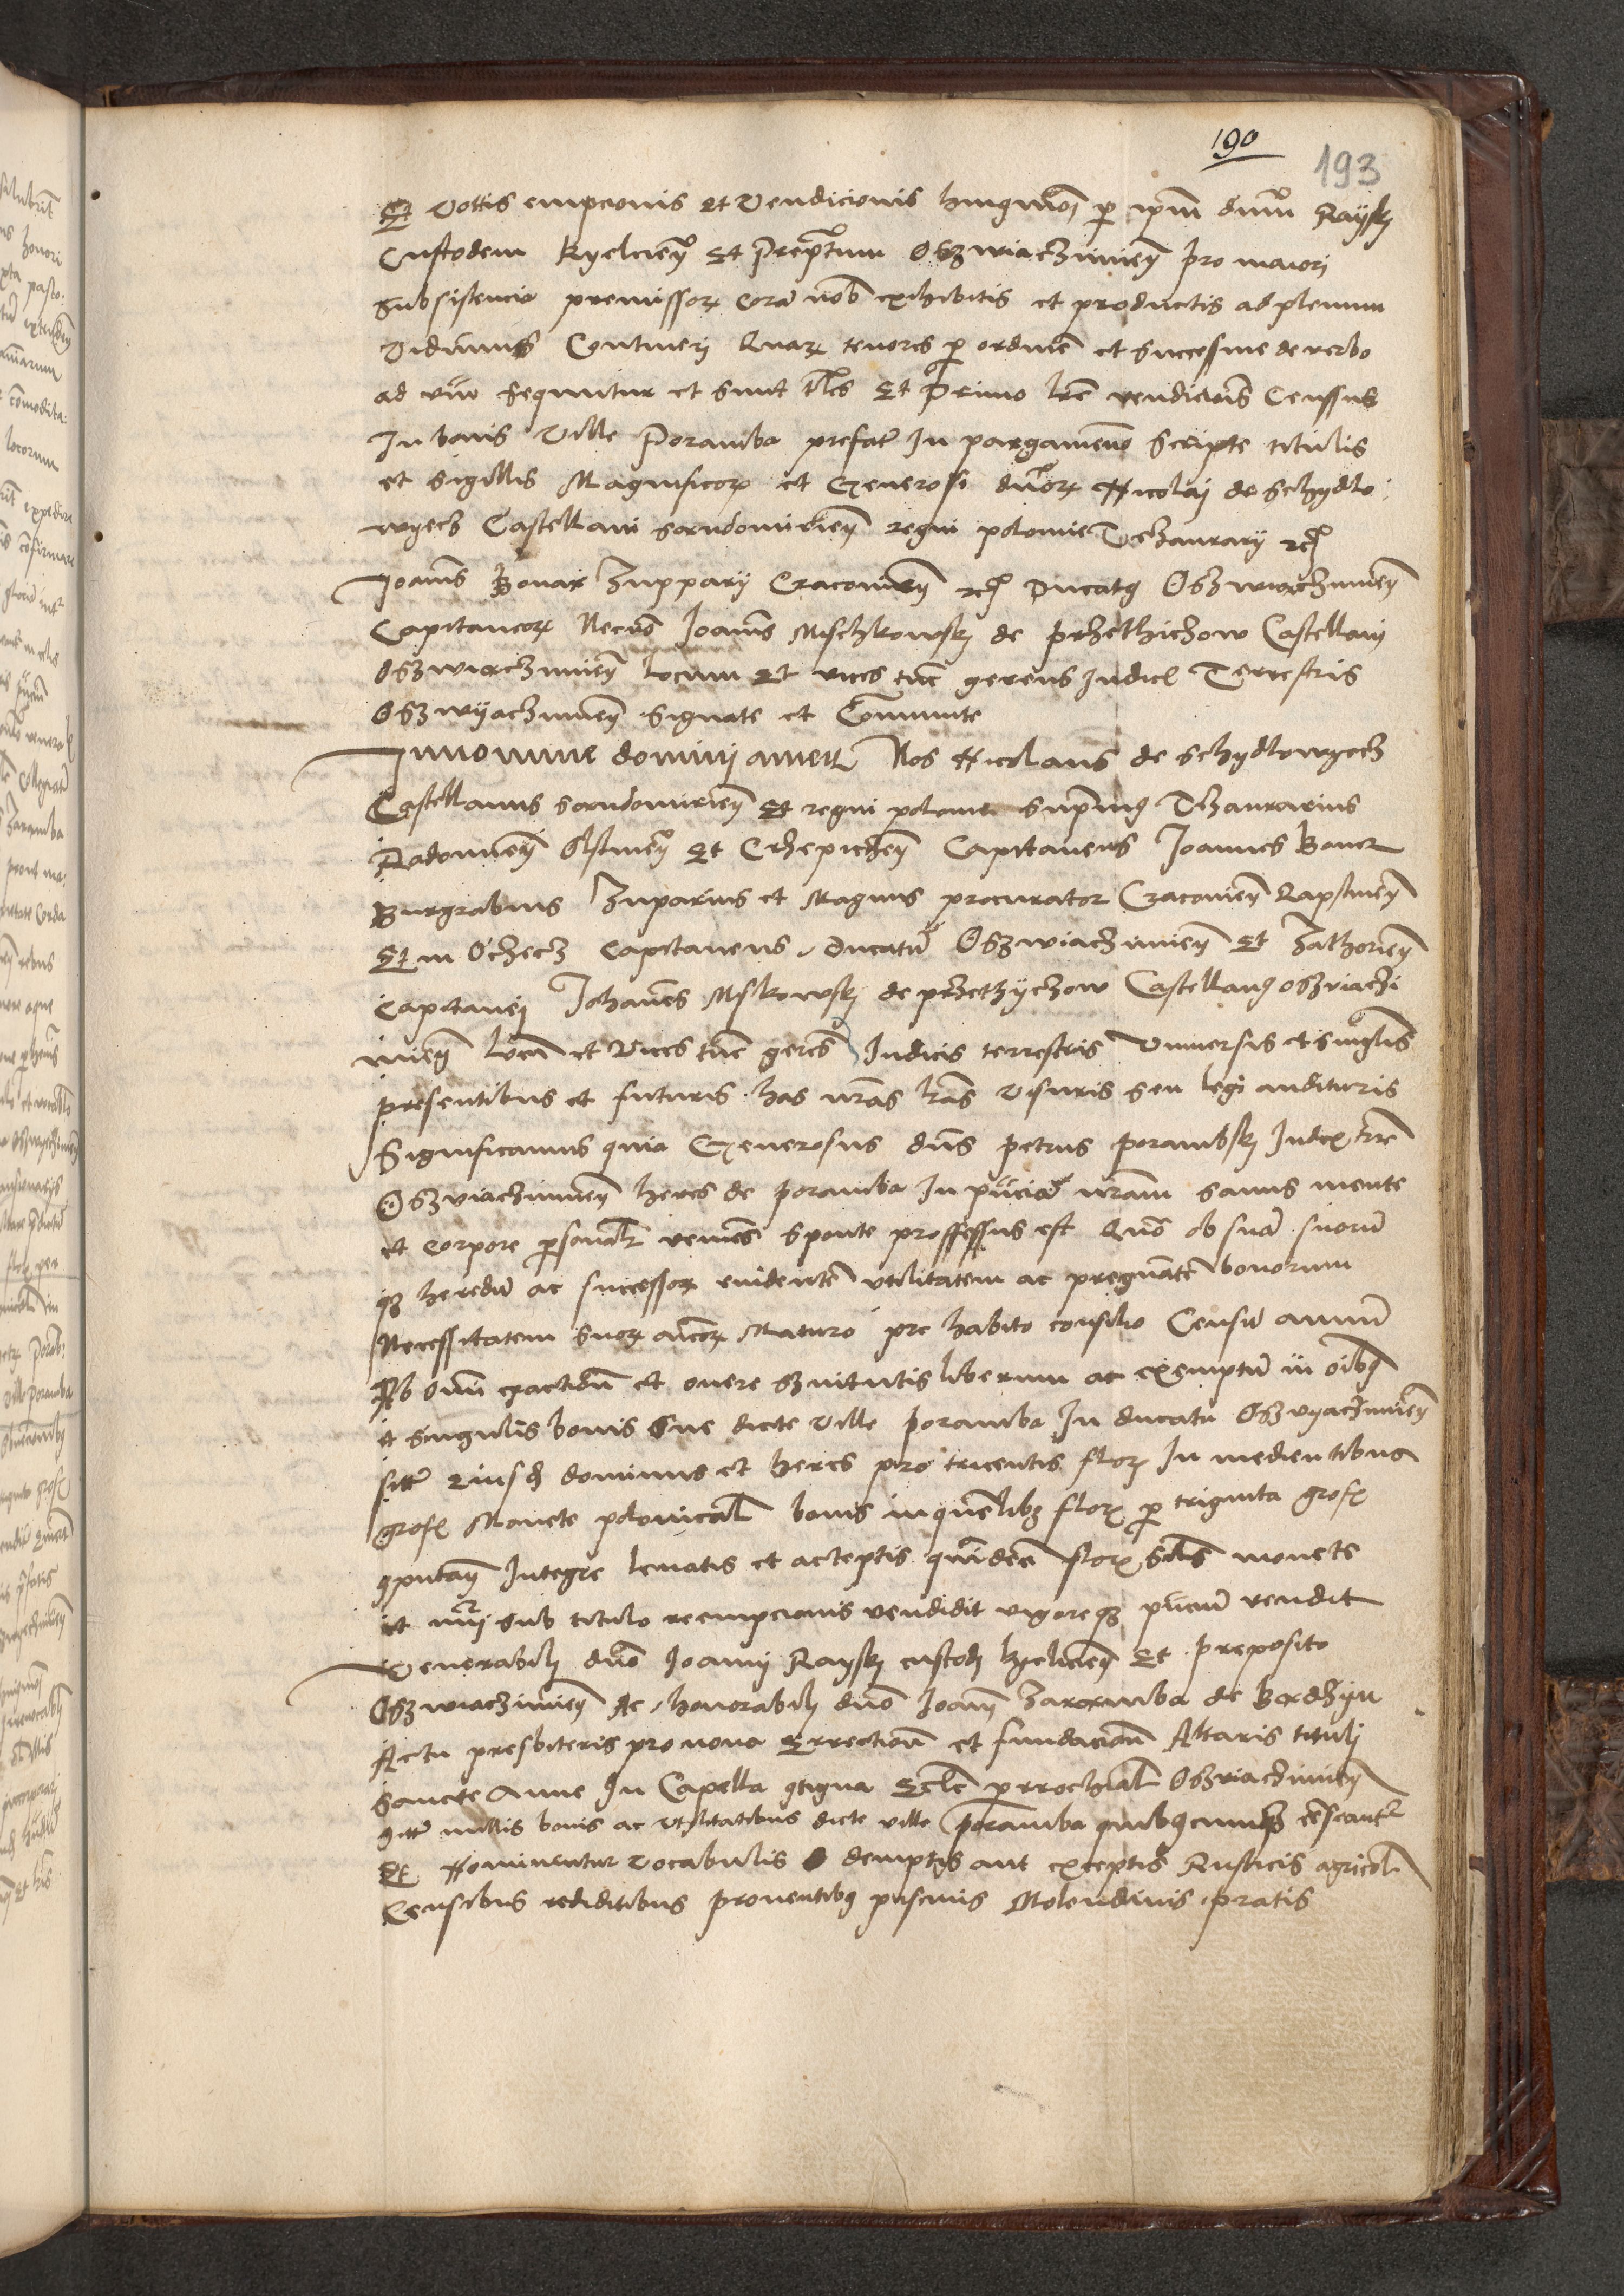 190
193
Et dottis empcionis et Vendicionis huiusmodi per ipm dnm Raysky
Custodem Kyelcien et Prepositum Oszwiacziminen pro maiori
subsistencia premissor corā nob exhibitis et productis ad plenum
Vidimus Contineri Quar tenores p ordinē et succesiue de verbo
ad verbū sequitur et sunt tales Et Primo lre vendicionis Censsus
In bonis Ville Poramba prefate In pargameno Scripte titulis
et sigillis Magnificor et Generosi dnor Nicolaj de Schydlo
wyecz Castellani sandomirien regni polonie Thezaurarij
Joannis Bonar Zupparij Cracovien Ducatq Oszwiacziminen
Capitaneor Necnō Joannis Mschkowsky de przethichow Castellani
Oszwiacziminen Locum et vices tūc gerens Judicis Terrestris
Oszwyacziminen Signate et Communite
In nomine dominj amen Nos Nicolaus de Schydlowyecz
Castellanus sandomirien et regni polonie supremus Thezaurarius
Radomien Olstinen et Crzepicien Capitaneus Joannes Boner
Burgrabius Zuparius et Magnus procurator Cracovien Rapstinen
Et in Oczecz Capitaneus Ducatū Oszwiacziminen et Zathorien
Capitanej Johannes Mskowsky de przethychow Castellanq oszviaczi
minen locū et Vices tūc gerēs Judicis terrestris Vniuersis et singlis
presentibus et futuris has nras lras Visuris seu legi audituris
Significamus quia Generosus dns petrus porambsky Judex trre
Oszviacziminen heres de poramba In pnciā nram sanus mente
et corpore psonalr veniēs sponte proffessus est Quō ob suā suorū
qz heredū ac successor euidentē vtilitatem ac pregnātē bonorum
Necessitatem suor amicor Maturo pre habito consilio Censū annuū
Ab omni exactionū et onere seruitutis liberum ac exemptū in oibq
et singulis bonis sue dicte Ville poramba In ducatu Oszvyacziminen
sitte Eiusdē dominus et heres pro tricentis flor In medientibus
gross Monete polonicalis bonis in quēlibz flor p triginta gross
cputan Integre leuatis et acceptis quindecē flor monete
et nri sub titulo reempcionis vendidit vigoreqz pncium vendit
Venerabili dno Joanni Raysky custodi kyelicien et preposito
Oszwiacziminen Ac honorabili dno Joanni Zaramba de Bordzyn
Actu presbiteris pro noua Errectionē et fundacionē Altaris tituli
Sancte Anne In Capella ctigua Eccle parrochial Oszviacziminen
nullis bonis ac Vtilitatibus dicte ville poramba quibqcumqz cēseantr
et Nominentur Vocabulis demptis aut exceptis Rusticis agricol
Censibus redditibus prouentibq piscinis Molendinis pratis